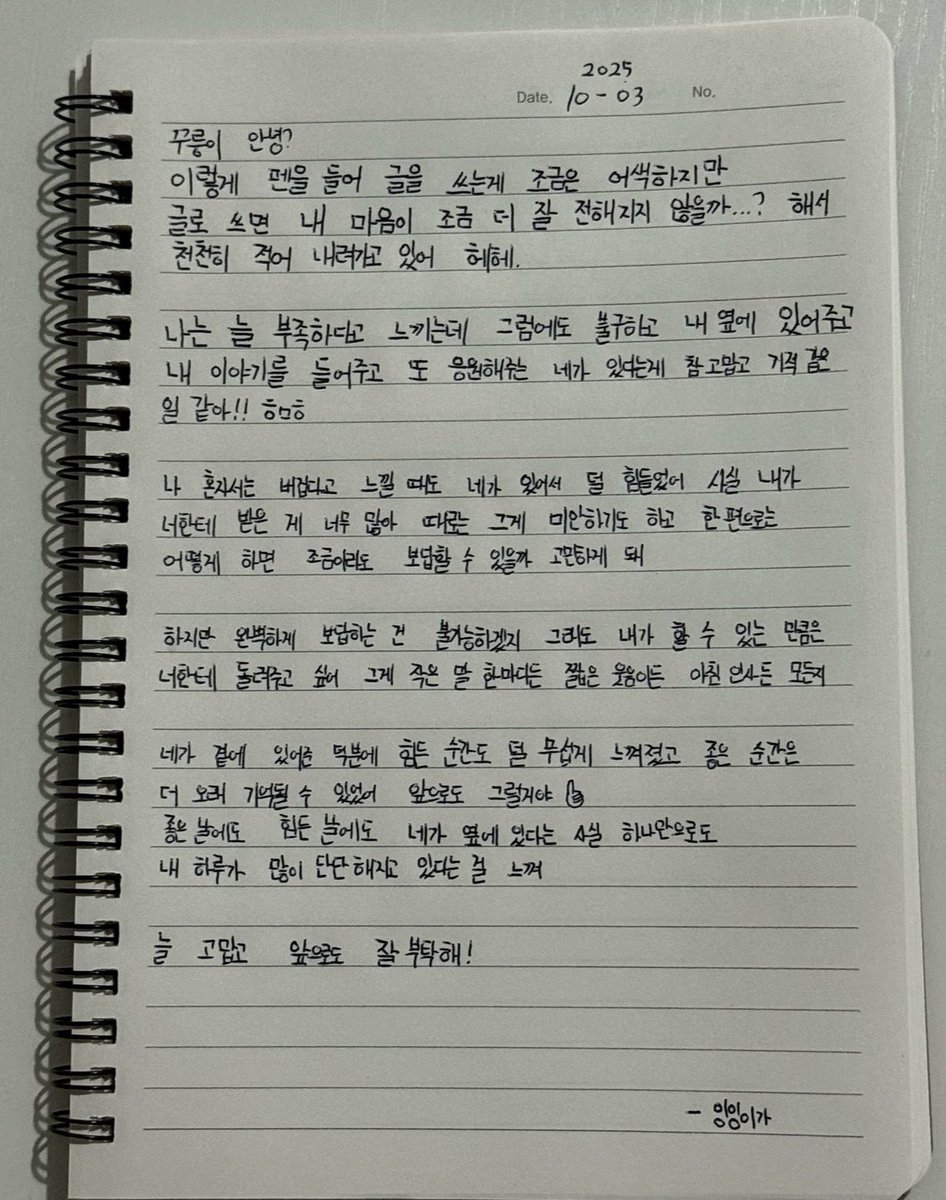 2025
Date. 10-03 No.
꾸룽이 안녕?
이렇게 펜을 들어 글을 쓰는게 조금은 어색하지만
글로 쓰면 내 마음이 조금 더 잘 전해지지 않을까...? 해서
천천히 적어 내려가고 있어 헤헤.
나는 늘 부족하다고 느끼는데 그럼에도 불구하고 내 옆에 있어주고
내 이야기를 들어주고 또 응원해주는 네가 있다는게 참 고맙고 기적 같은
일 같아!! ㅎㅁㅎ
나 혼자서는 버겁다고 느낄 때도 네가 있어서 덜 힘들었어 사실 내가
너한테 받은 게 너무 많아 때로는 그게 미안하기도 하고 한편으로는
어떻게 하면 조금이라도 보답할 수 있을까 고민하게 돼
하지만 완벽하게 보답하는 건 불가능하겠지 그래도 내가 할 수 있는 만큼은
너한테 돌려주고 싶어 그게 작은 말 한마디든 짧은 웃음이든 아침 인사든 모든지
네가 곁에 있어준 덕분에 힘든 순간도 덜 무섭게 느껴졌고 좋은 순간은
더 오래 기억될 수 있었어 앞으로도 그럴거야
좋은 날에도 힘든 날에도 네가 옆에 있다는 사실 하나만으로도
내 하루가 많이 단단해지고 있다는 걸 느껴
늘 고맙고 앞으로도 잘 부탁해!
- 잉잉이가